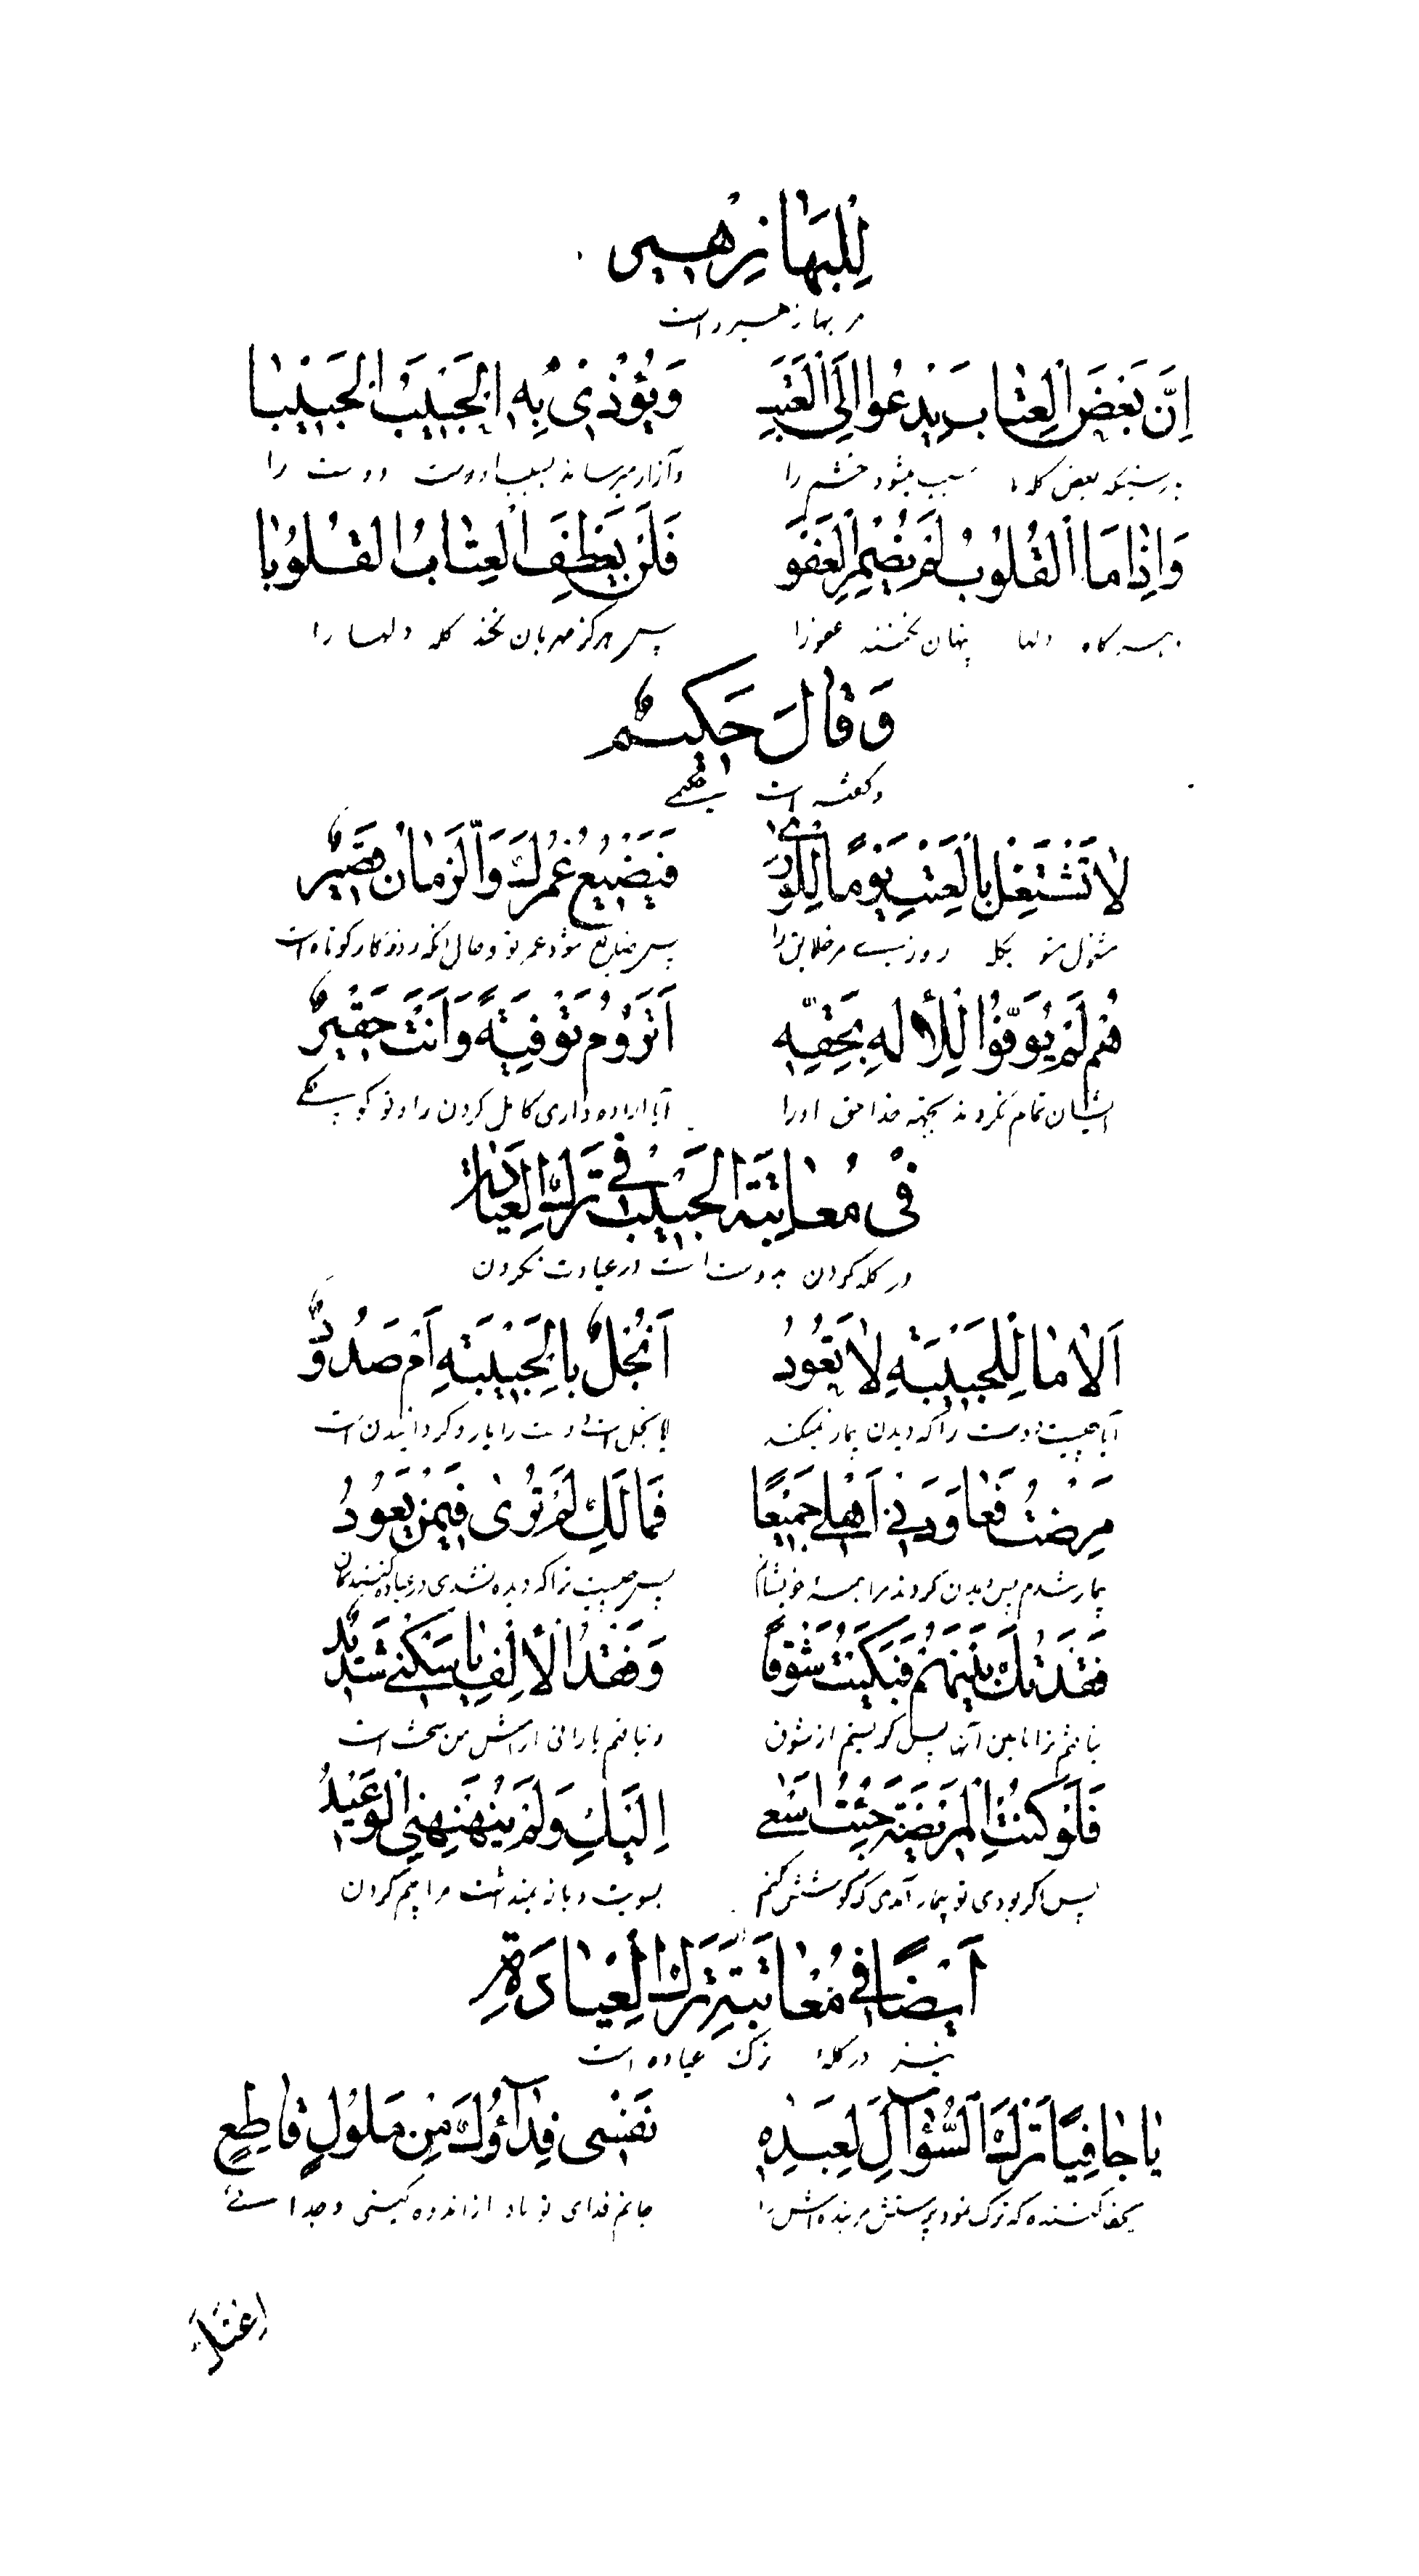 لِلْبَهَا زُهَیر
مر بها زهیر راست
اِنَّ بَعْضَ الْعِتَابِ یَدْعُوا اِلَی الْعَتْبِ وَیُؤْذِی بِهِ الْحَبِیبُ الْحَبِیبَا
بدرستیکه بعض گله ها سبب میشود خشم را و آزار میرساند بسبب او دوست دوست را
وَاِذَا مَا الْقُلُوبُ لَمْ تُضْمِرِ الْعَفْوَ فَلَنْ یَعْطِفَ الْعِتَابُ الْقُلُوبَا
هر گاه دلها پنهان نکنند عفو را پس هرگز مهربان نکند گله دلها را
وَقَالَ حَکِیمٌ
و گفته است حکیمی
لَا تَشْتَغِلْ بِالْعَتْبِ یَوْمًا لِلْوَرَی فَیَضِیعَ عُمْرُكَ وَالزَّمَانُ قَصِیرٌ
مشغول مشو بگله روزی مر خلایق را پس ضایع شود عمر تو و حال آنکه روزگار کوتاه است
هُمْ لَمْ یُوَفُّوا لِلْاِلٰهِ بِحَقِّهِ اَتَرُومُ تَوْفِیَةً وَاَنْتَ حَقِیرٌ
ایشان تمام نکردند بجهة خدا حق او را آیا اراده داری کامل کردن را و تو کوچکی
فِی مُعَاتَبَةِ الْحَبِیبِ فِی تَرْكِ الْعِیَادَةِ
در گله کردن دوست است در عیادت نکردن
اَلَا مَا لِلْحَبِیبَةِ لَا تَعُودُ اَبُخْلٌ بِالْحَبِیبَةِ اَمْ صُدُودٌ
آیا چیست دوست را که دیدن بیمار نمیکند آیا بخل است دوست را یا رو گردانیدن است
مَرِضْتُ فَعَاوَدَنِی اَهْلِی جَمِیعًا فَمَا لَكِ لَمْ تُرَی فِیمَنْ یَعُودُ
بیمار شدم پس دیدن کردند مرا همهٔ خویشان پس چیست ترا که دیده نشدی در عیاده کنندگان
فَقَدْتُكِ بَیْنَهُمْ فَبَکَیْتُ شَوْقًا وَفَقْدُ الْاِلْفِ یَا سَکَنِی شَدِیدٌ
نیافتم ترا مابین آنها پس گریستم از شوق و نیافتن یار ای آرامش من سخت است
فَلَوْ کُنْتِ الْمَرِیضَةَ جِئْتُ اَسْعَی اِلَیْكِ وَلَمْ یُنَهْنِهْنِی الْوَعِیدُ
پس اگر بودی تو بیمار آمدمی که کوشش کنم بسویت و باز نمیداشت مرا بیم کردن
اَیْضًا فِی مُعَاتَبَةِ تَرْكِ الْعِیَادَةِ
نیز در گلهٔ ترک عیاده است
یَا جَافِیًا تَرَكَ السُّؤَالَ لِعَبْدِهِ نَفْسِی فِدَاؤُكَ مِنْ مَلُولٍ قَاطِعٍ
جفا کننده که ترک نمود پرسش مر بنده اش را جانم فدای تو باد از اندوه گینی و جدا